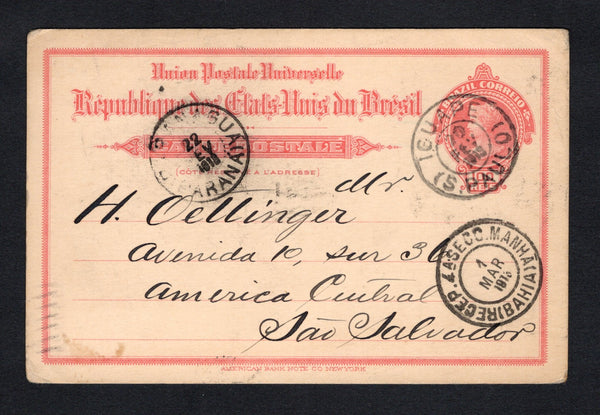 Union Postale Universelle
République des États-Unis du Brésil
CARTE POSTALE
(CÔTÉ RÉSERVÉ A L'ADRESSE)
BRAZIL CORREIO
REIS
IGUAPE (S. PAULO)
PARANAGUA (E. PARANA)
22
FEV
1913
4A SECC. MANHÃ (BAHIA) RECEP.
1
MAR
1913
Mr.
H. Oellinger
Avenida 10, sur 36
America Central
São Salvador
AMERICAN BANK NOTE CO NEW YORK